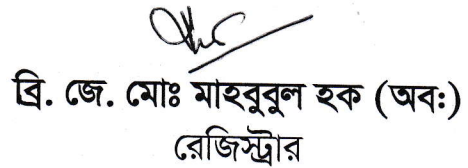 ব্রি. জে. মোঃ মাহবুবুল হক (অব:)
রেজিস্ট্রার